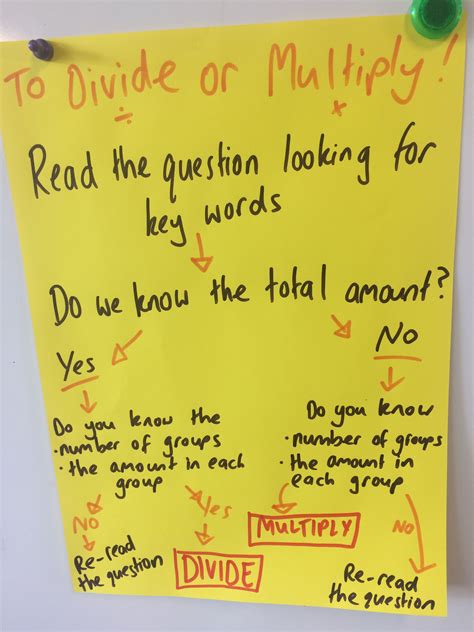 To Divide or Multiply!
÷ ×
Read the question looking for
key words
Do we know the total amount?
Yes
No
Do you know the
• number of groups
• the amount in each
group
No
Yes
Re-read
the question
DIVIDE
Do you know
• number of groups
• the amount in
each group
MULTIPLY
No
Re-read
the question